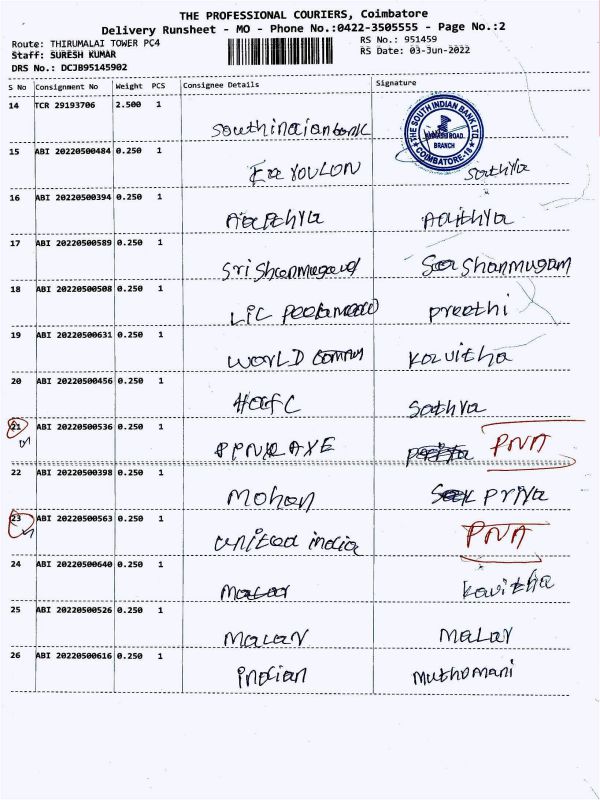 THE PROFESSIONAL COURIERS, Coimbatore
Delivery Runsheet - MO - Phone No.:0422-3505555 - Page No.:2
Route: THIRUMALAI TOWER PC4 RS No.: 951459
Staff: SURESH KUMAR RS Date: 03-Jun-2022
DRS No.: DCJB95145902
S No Consignment No Weight PCS Consignee Details Signature
14 TCR 29193706 2.500 1
southindianbank
THE SOUTH INDIAN BANK LTD.
ROAD.
BRANCH
COIMBATORE-18
15 ABI 20220500484 0.250 1
sathya
16 ABI 20220500394 0.250 1
Aadithya
17 ABI 20220500589 0.250 1
Sri Shanmugavel Shanmugam
18 ABI 20220500508 0.250 1
LIC Peelamedu preethi
19 ABI 20220500631 0.250 1
WORLD Kavitha
20 ABI 20220500456 0.250 1
sathya
21 ABI 20220500536 0.250 1
PNA
22 ABI 20220500398 0.250 1
Mohan Priya
23 ABI 20220500563 0.250 1
united india PNA
24 ABI 20220500640 0.250 1
Malar Kavitha
25 ABI 20220500526 0.250 1
Malar Malar
26 ABI 20220500616 0.250 1
indian Muthumani